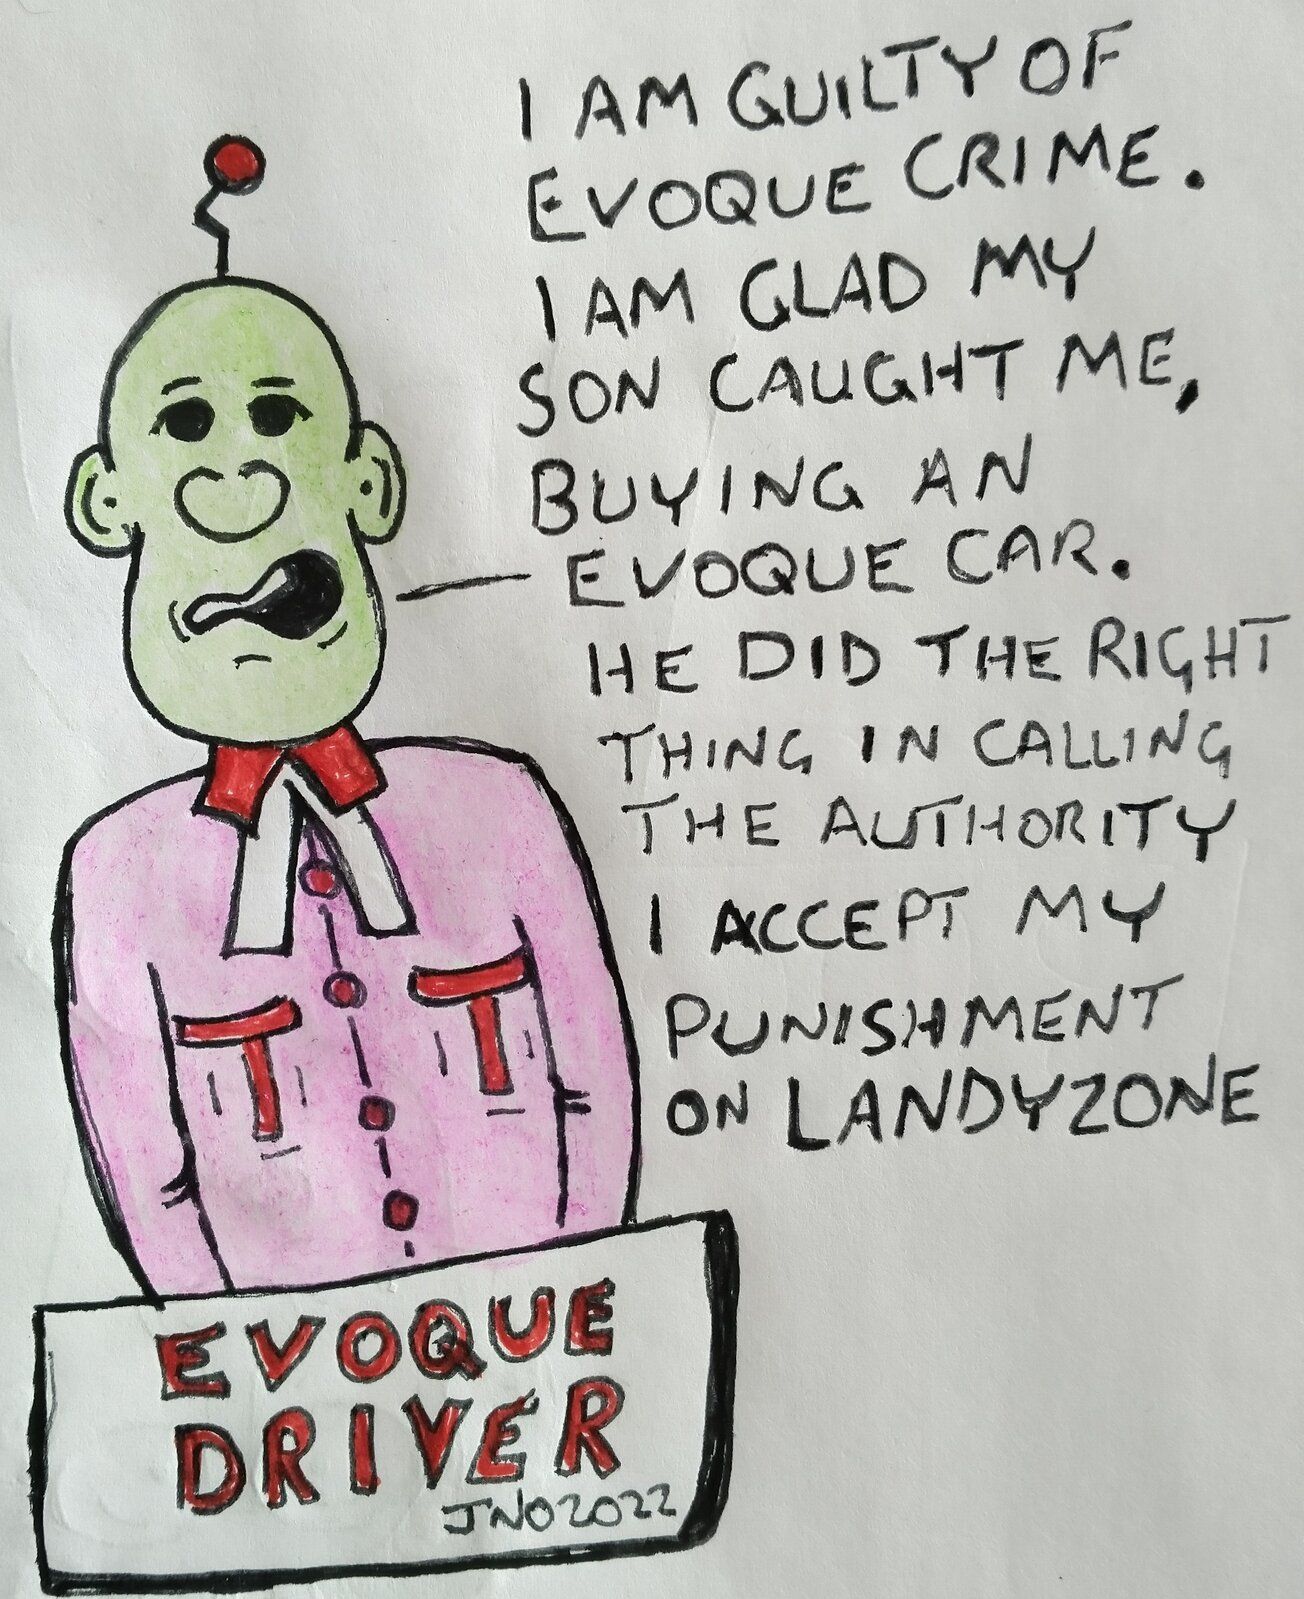 I AM GUILTY OF
EVOQUE CRIME.
I AM GLAD MY
SON CAUGHT ME,
BUYING AN
EVOQUE CAR.
HE DID THE RIGHT
THING IN CALLING
THE AUTHORITY
I ACCEPT MY
PUNISHMENT
ON LANDYZONE
EVOQUE
DRIVER
JNO2022